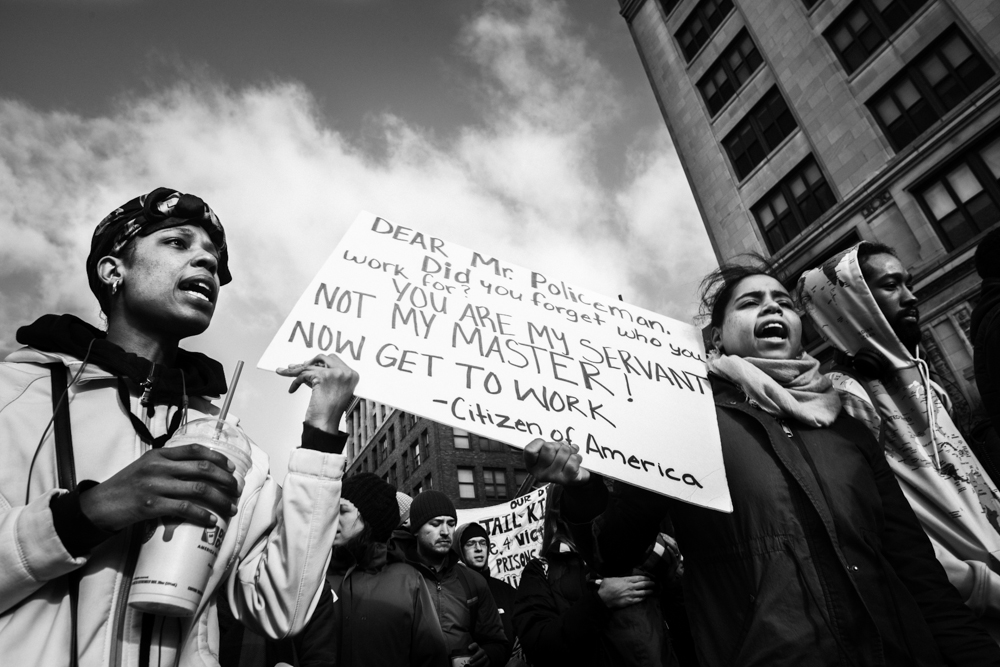 DEAR Mr. Policeman.
Did you forget who you
work for?
YOU ARE MY SERVANT
NOT MY MASTER!
NOW GET TO WORK
-Citizen of America
OUR
JAIL
PRISONS